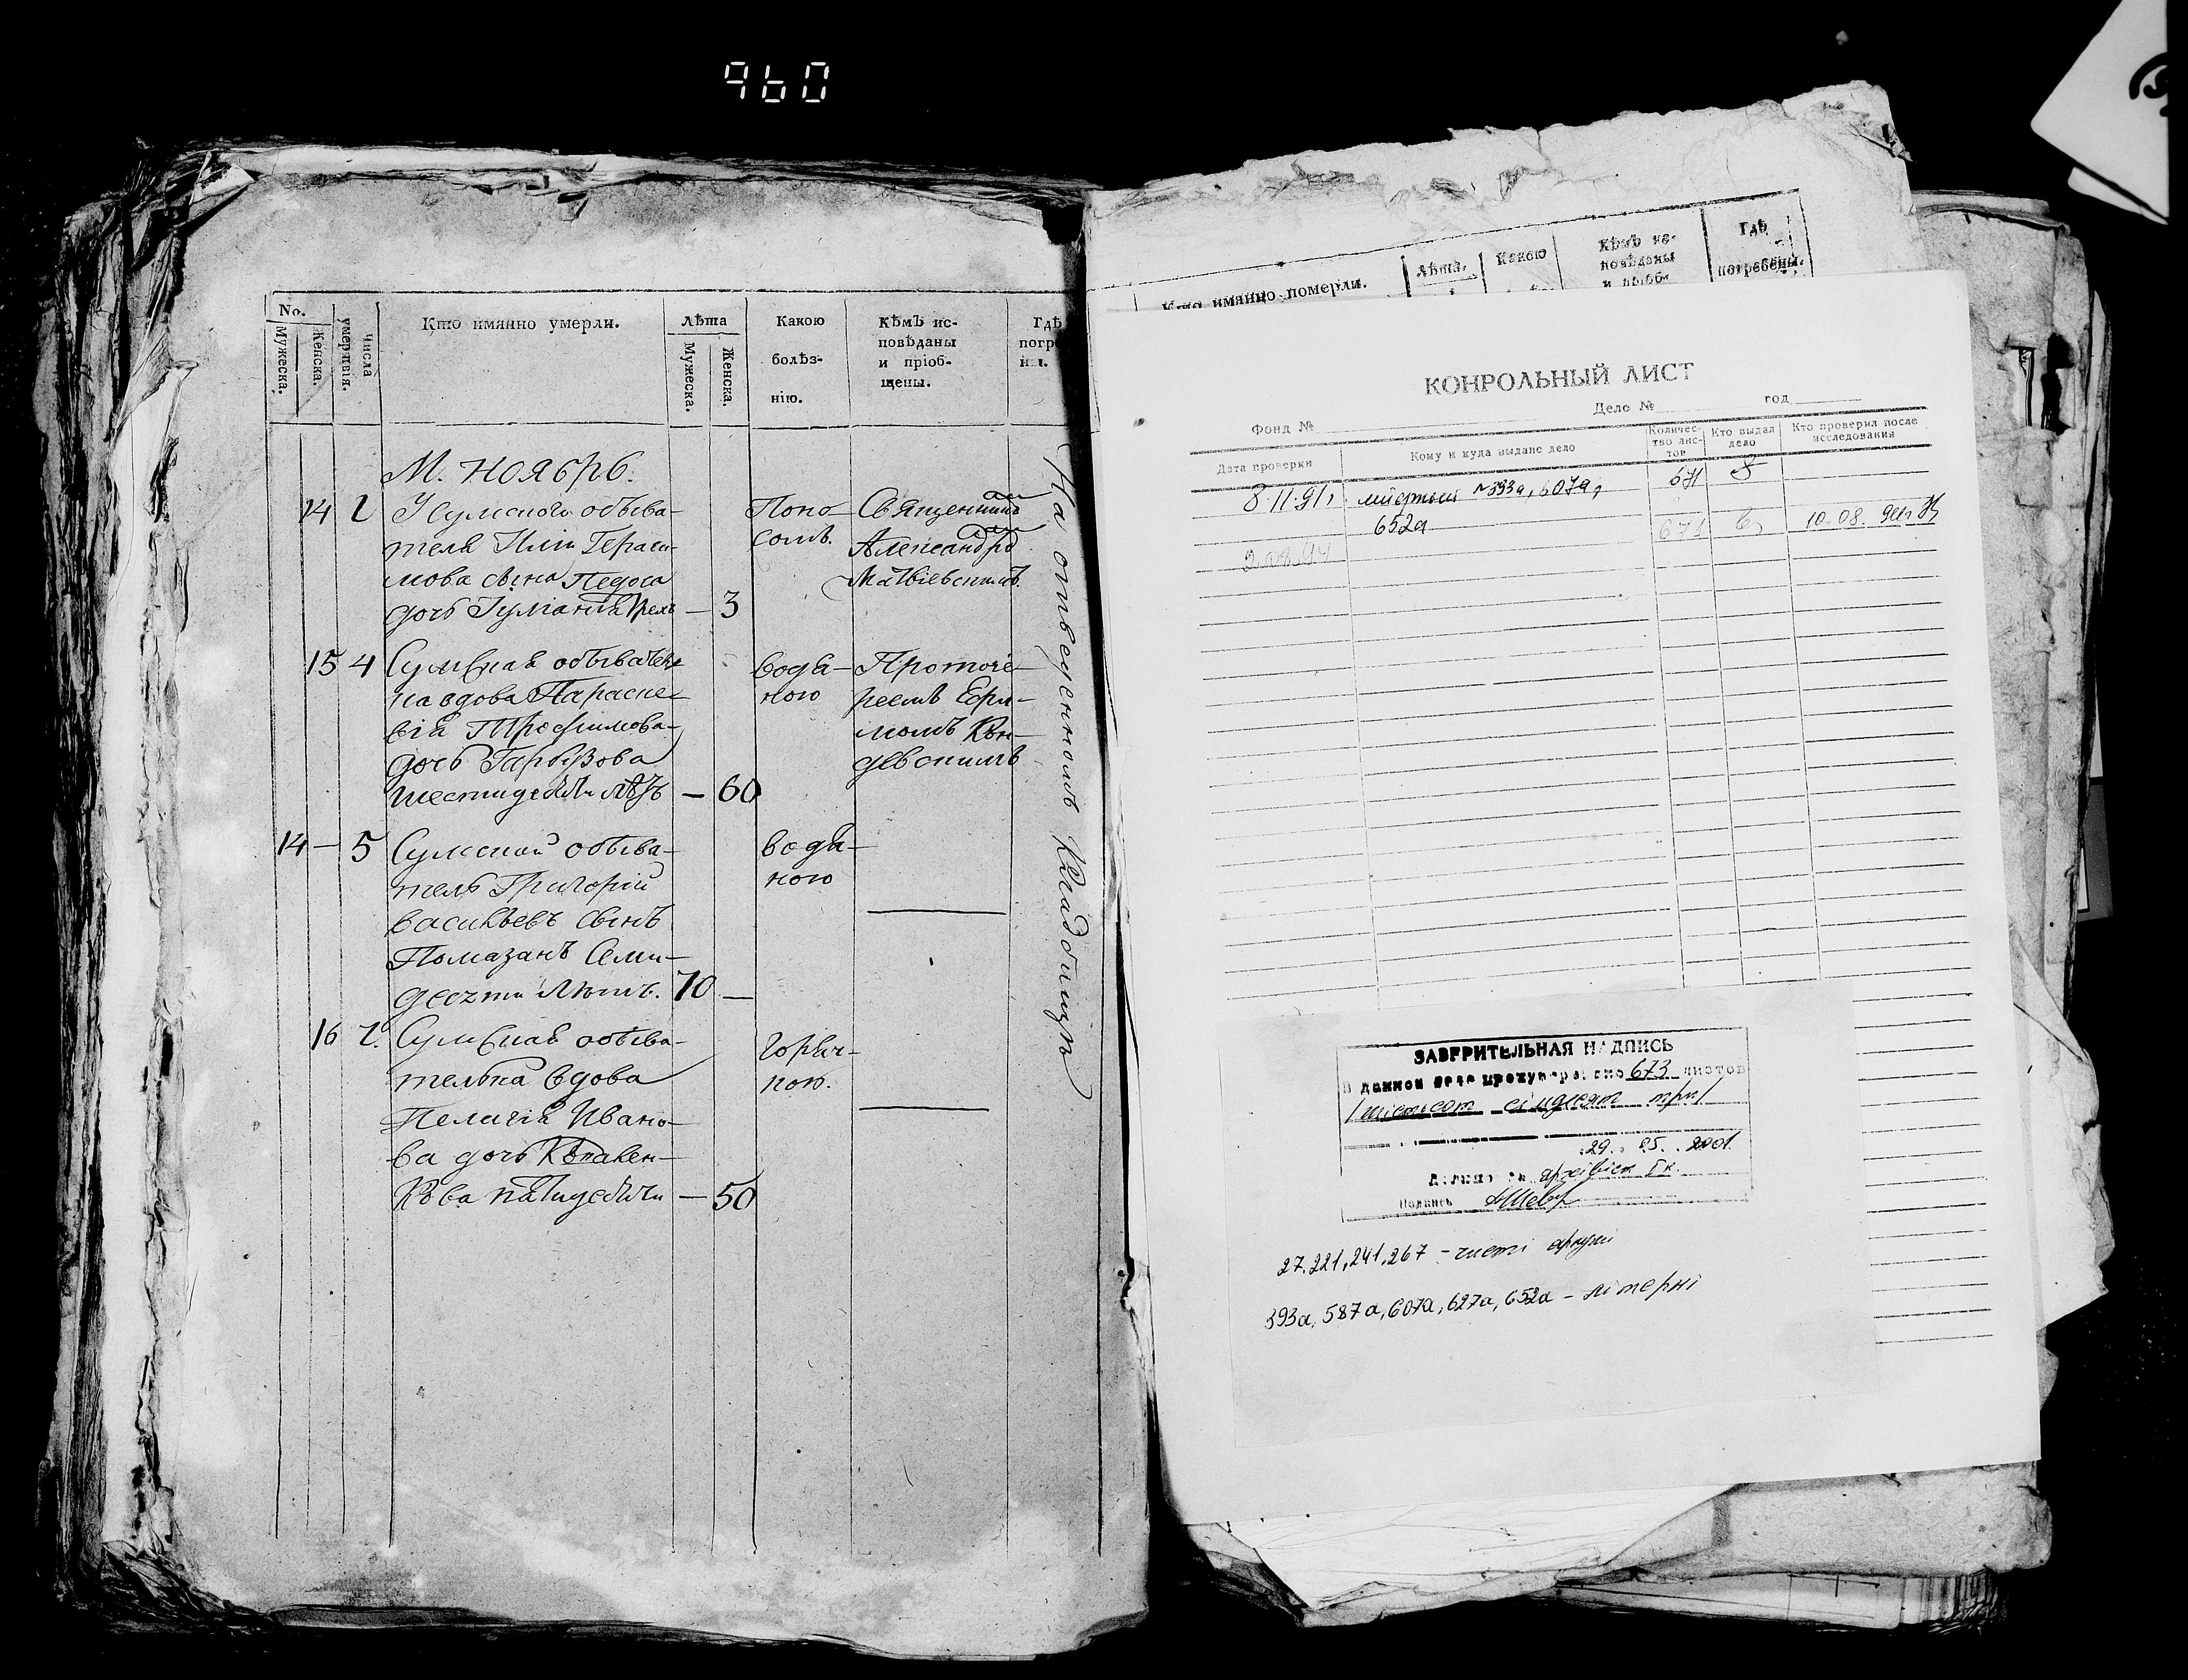 960
No.
Мужеска.
Женска.
Числа
умертвія.
Кто имянно умерли.
Лѣта
Мужеска.
Женска.
Какою
болѣз-
нію.
Кѣмъ ис-
повѣданы
и пріоб-
щены.
Гдѣ
погре
ны.
М. Ноябрь.
14 2 У Сумского обыва-
теля Иліи Гераси-
мова сына Федоса
дочь Іуліанія — 3
Поно-
сомъ.
Священникомъ
Александромъ
Матвіевскимъ
15 4 Сумская обывател
на вдова Параске-
вія Трофимова
дочь Гарбузова
шестидесяти лѣтъ — 60
водя-
ною
Протоіе-
реемъ
14 — 5 Сумской обыва-
тель Григорій
Васильевъ сынъ
Помазанъ Семи-
десяти лѣтъ. 70 —
водя-
ною
16 7. Сумская обыва-
телька вдова
Пелагія Ивано-
ва дочь
пятидесяти — 50
горяч-
кою.
На отведенномъ Кладбищѣ
Кто имянно померли.
Лѣта.
Какою
Кѣмъ ис-
повѣданы
и пріоб-
Гдѣ
погребены.
КОНРОЛЬНЫЙ ЛИСТ
Фонд № Дело № год
Дата проверки
Кому и куда выдано дело
Количес-
тво лис-
тов
Кто выдал
дело
Кто проверил после
исследования
8.11.91г. №393а, 607а, 671
652а
2.08.94 671 10.08.
ЗАВЕРИТЕЛЬНАЯ НАДПИСЬ
В данном деле пронумеровано 673 листов
/шістсот сімдесят три/
29. 05. 2001.
Должность архівіст І к.
Подпись
27, 221, 241, 267 – чисті аркуші
393а, 587а, 607а, 627а, 652а – літерні